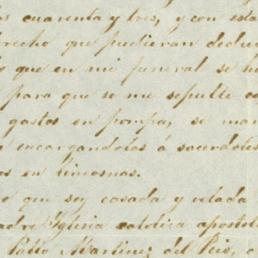 os cuarenta y tres, y con esta
derecho que pudieran deduc
lo que en mi funeral se h
para que se me sepulte co
gastos en pompa, se man
encargandolas á sacerdotes
os en limosnas.
o que soy casada y velada
adre Yglesia catolica apostol
Pablo Martinez del Rio, c